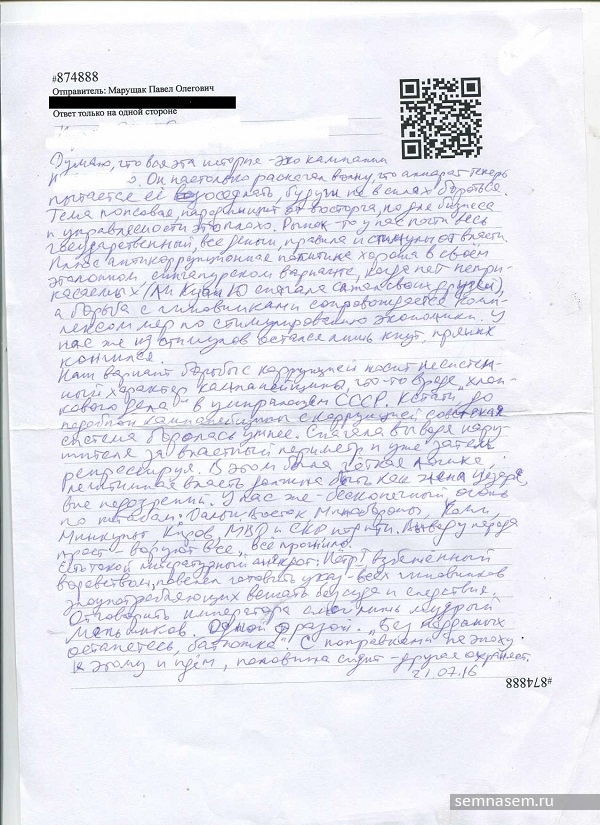 #874888
Отправитель: Марущак Павел Олегович
Ответ только на одной стороне
Думаю, что вся эта история - эхо кампании
Н Он настолько раскачал волну, что аппарат теперь
пытается её оседлать, будучи не в силах бороться.
Тема попсовая, народ от восторга, но для бизнеса
и управляемости это плохо. Рынок-то у нас почти весь
государственный, все деньги, правила и стимулы от власти.
Плюс антикоррупционная политика хороша в своём
эталонном, сингапурском варианте, когда нет непри-
касаемых (Ли Куан Ю сначала сажал своих друзей),
а борьба с чиновниками сопровождается комп-
лексом мер по стимулированию экономики. У
нас же из стимулов остался лишь кнут, пряник
кончился.
Наш вариант борьбы с коррупцией носит несистем-
ный характер кампанейщины, что-то вроде „хлоп-
кового дела" в умирающем СССР. Кстати, до
подобной кампанейщины с коррупцией советская
система боролась умнее. Сначала выводя нару-
шителя за властный периметр и уже затем
репрессируя. В этом была чёткая логика,
легитимная власть должна быть как жена Цезаря,
вне подозрений. У нас же - бесконечный огонь
по штабам: Дальн. Восток, Минобороны, Коми,
Минкульт, Киров, МВД и СКР Вывод у народа
прост - воруют все, все прогнило.
Есть такой литературный анекдот: Пётр I взбешённый
воровством, повелел готовить указ - всех чиновников
злоупотребляющих вешать без суда и следствия.
Отговорить императора смог лишь мудрый
Меньшиков. Одной фразой. „Без подданых
останетесь, батюшка". С поправками на эпоху
к этому и идём, половина сидит - другая охраняет.
21.07.16
#874888
semnasem.ru